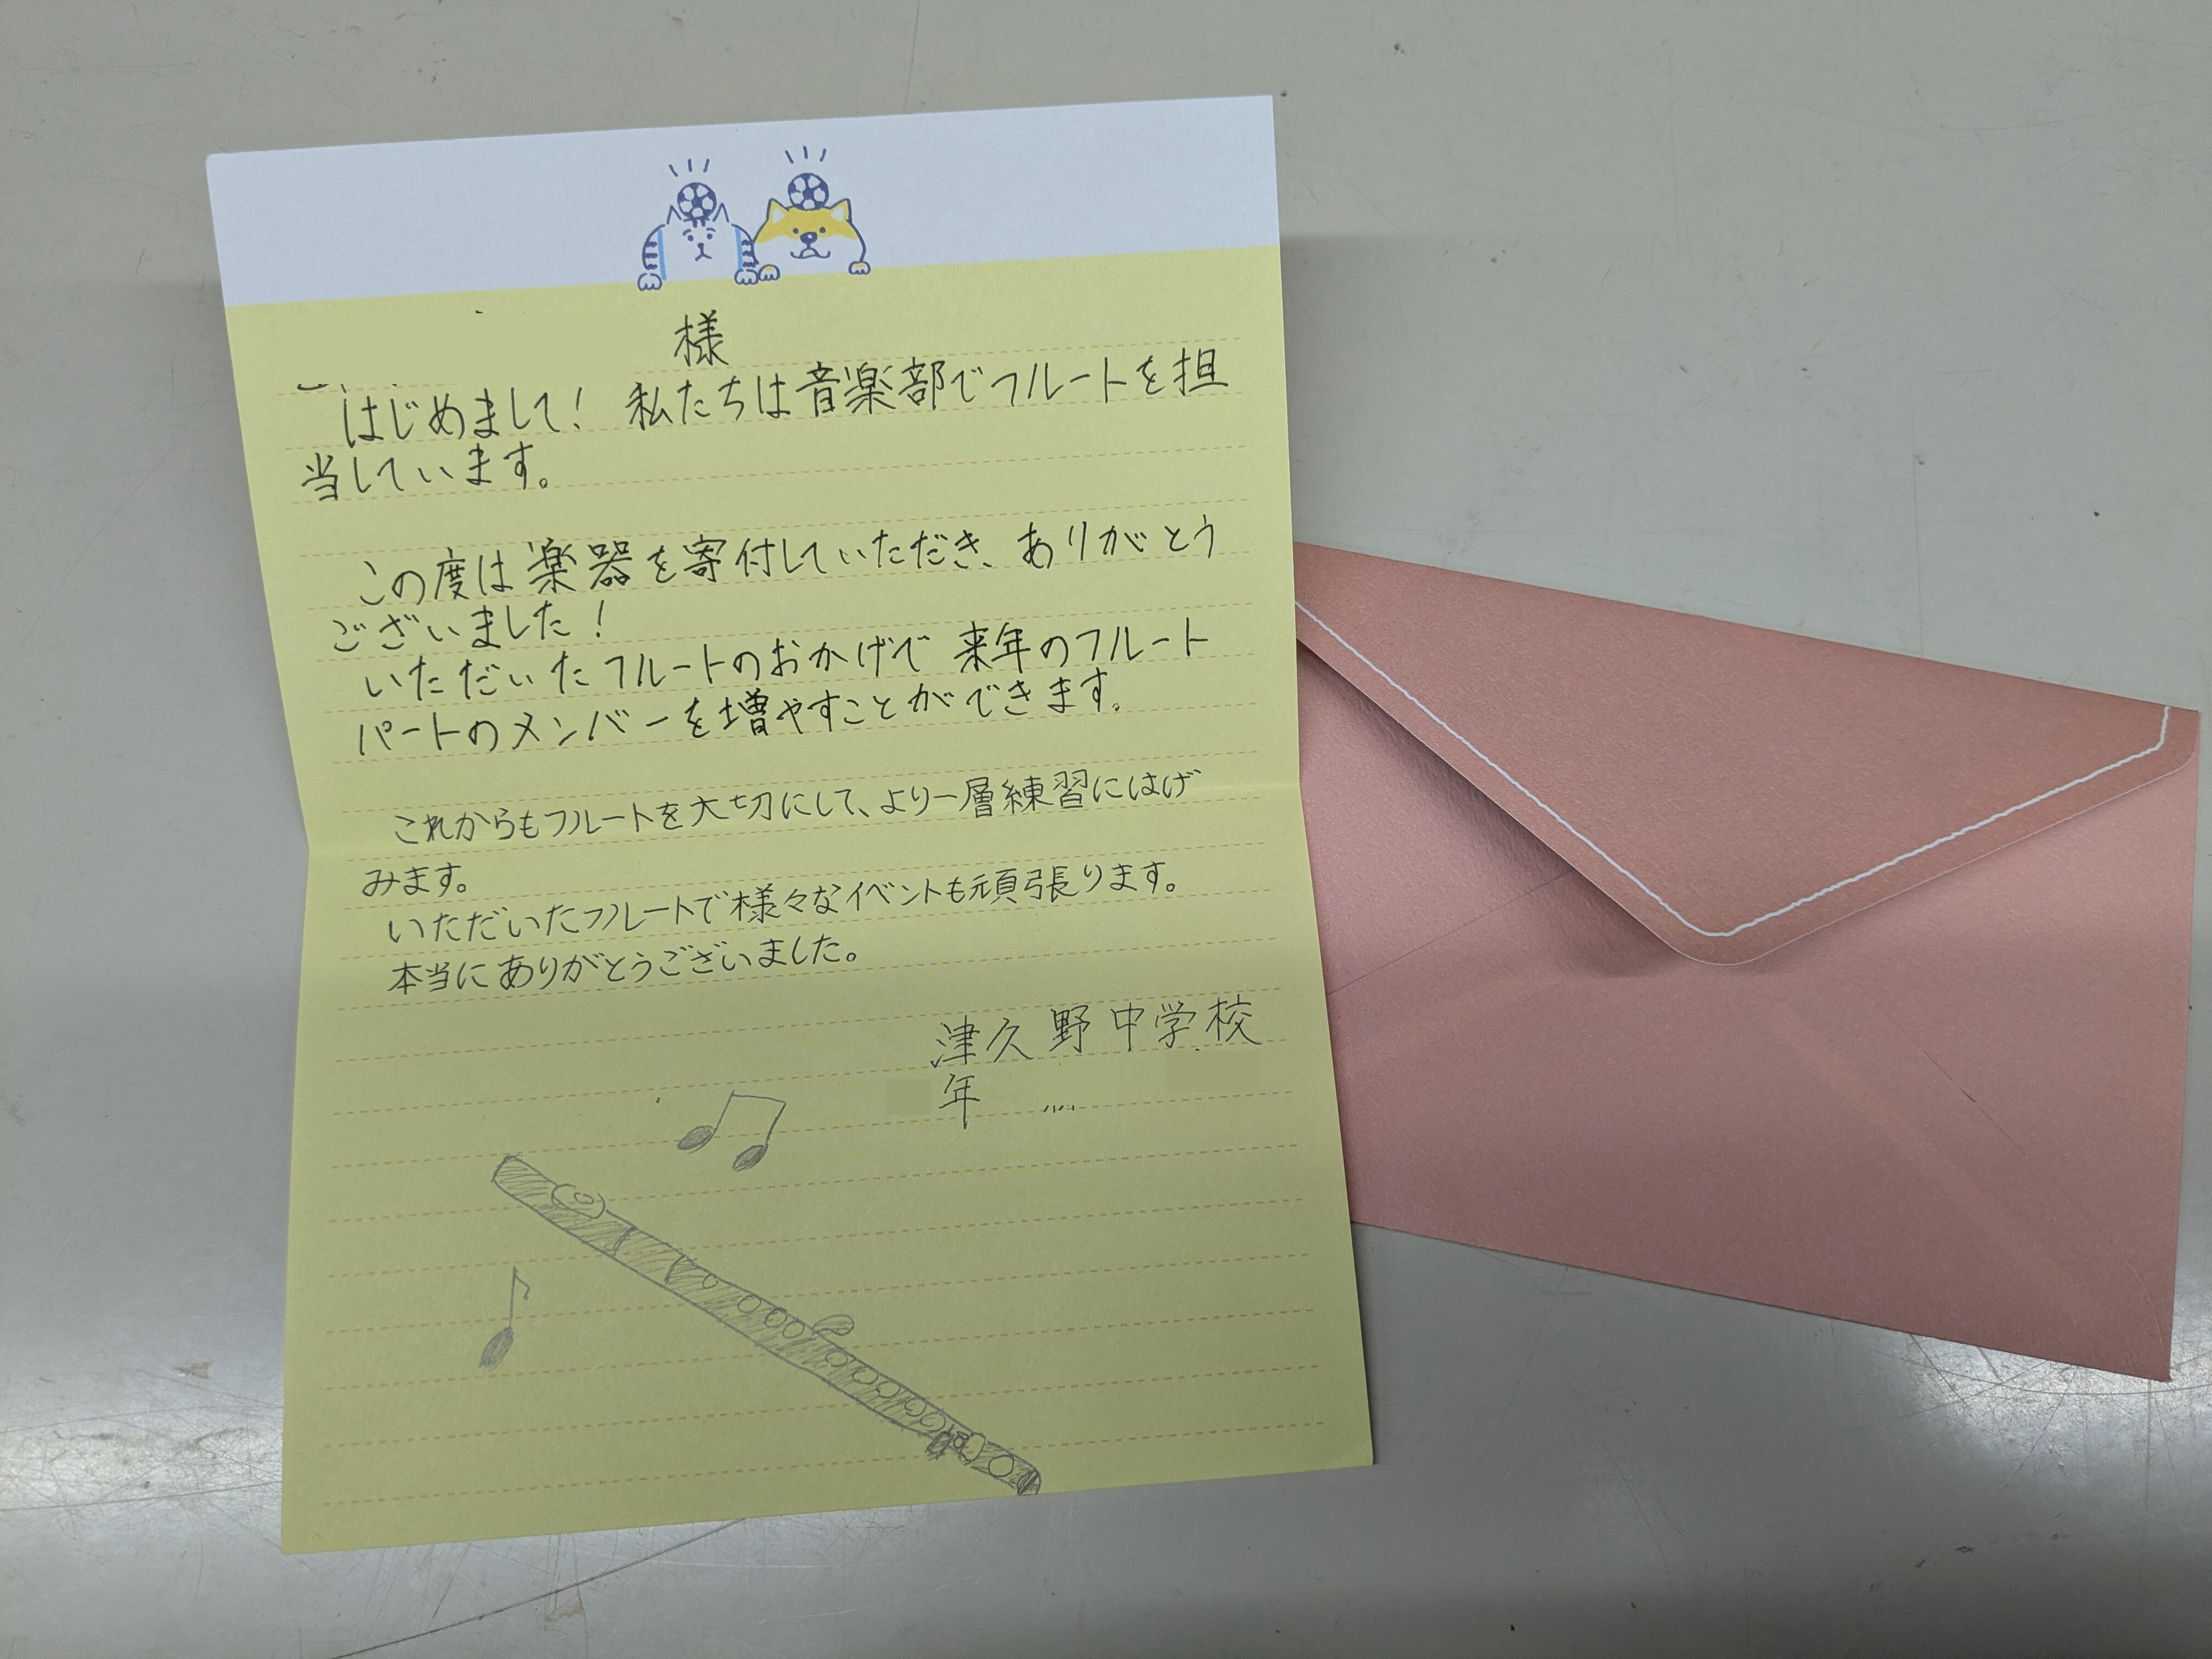 様
はじめまして！ 私たちは音楽部でフルートを担
当しています。
この度は楽器を寄付していただき、ありがとう
ございました！
いただいたフルートのおかげで 来年のフルート
パートのメンバーを増やすことができます。
これからもフルートを大切にして、より一層練習にはげ
みます。
いただいたフルートで様々なイベントも頑張ります。
本当にありがとうございました。
津久野中学校
年